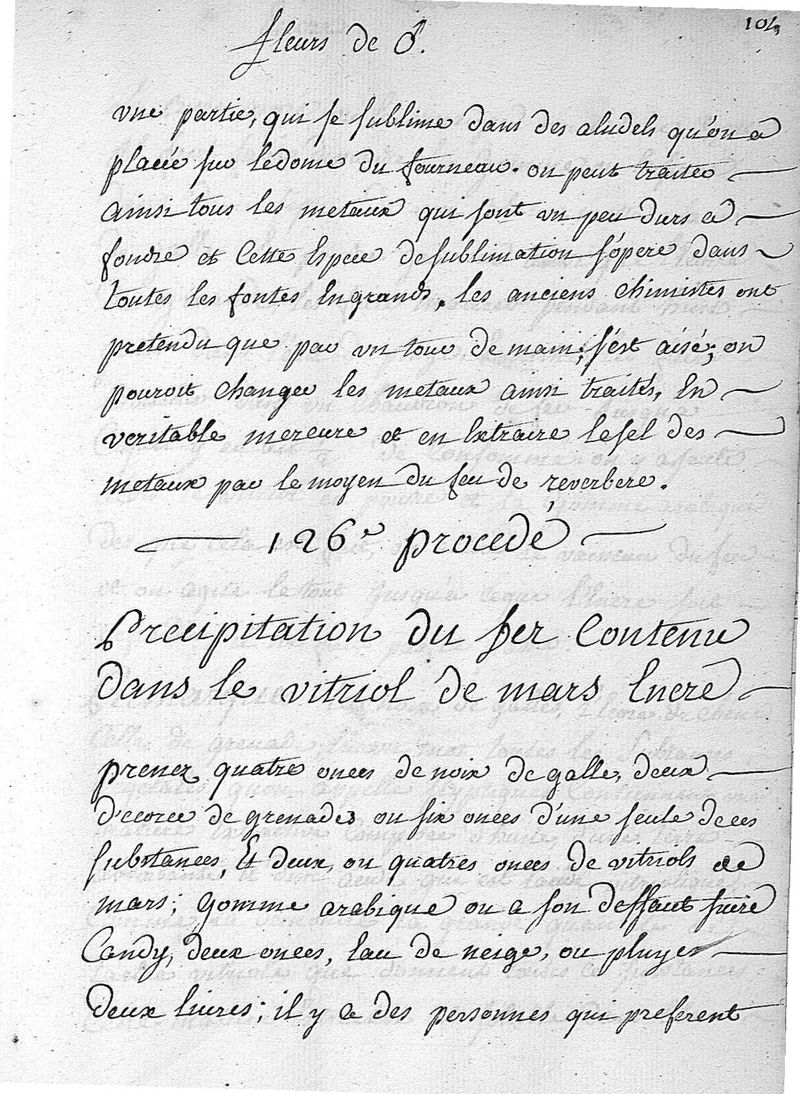 104
fleurs de ♂.
vne partie, qui se sublime dans des aludels qu'on a
placée sur le dome du fourneau. on peut traiter
ainsi tous les metaux qui sont vn peu durs a
fondre et cette Espece de sublimation s'opere dans
toutes les fontes Engrands, les anciens chimistes ont
pretendu que par vn tour de main, s'est aisé, on
pouroit changer les metaux ainsi traités, En
veritable mercure et en Extraire le sel des
metaux par le moyen du feu de reverbere.
126e procedé
Precipitation du fer Contenu
dans le vitriol de mars Encre
prenez quatre onces de noix de galle, deux
d'ecorce de grenades, ou six onces d'une seule de ces
substances, Et deux, ou quatres onces de vitriols de
mars; gomme arabique ou a son deffaut sucre
Candy, deux onces, Eau de neige, ou pluye
deux livres; il y a des personnes qui preferent